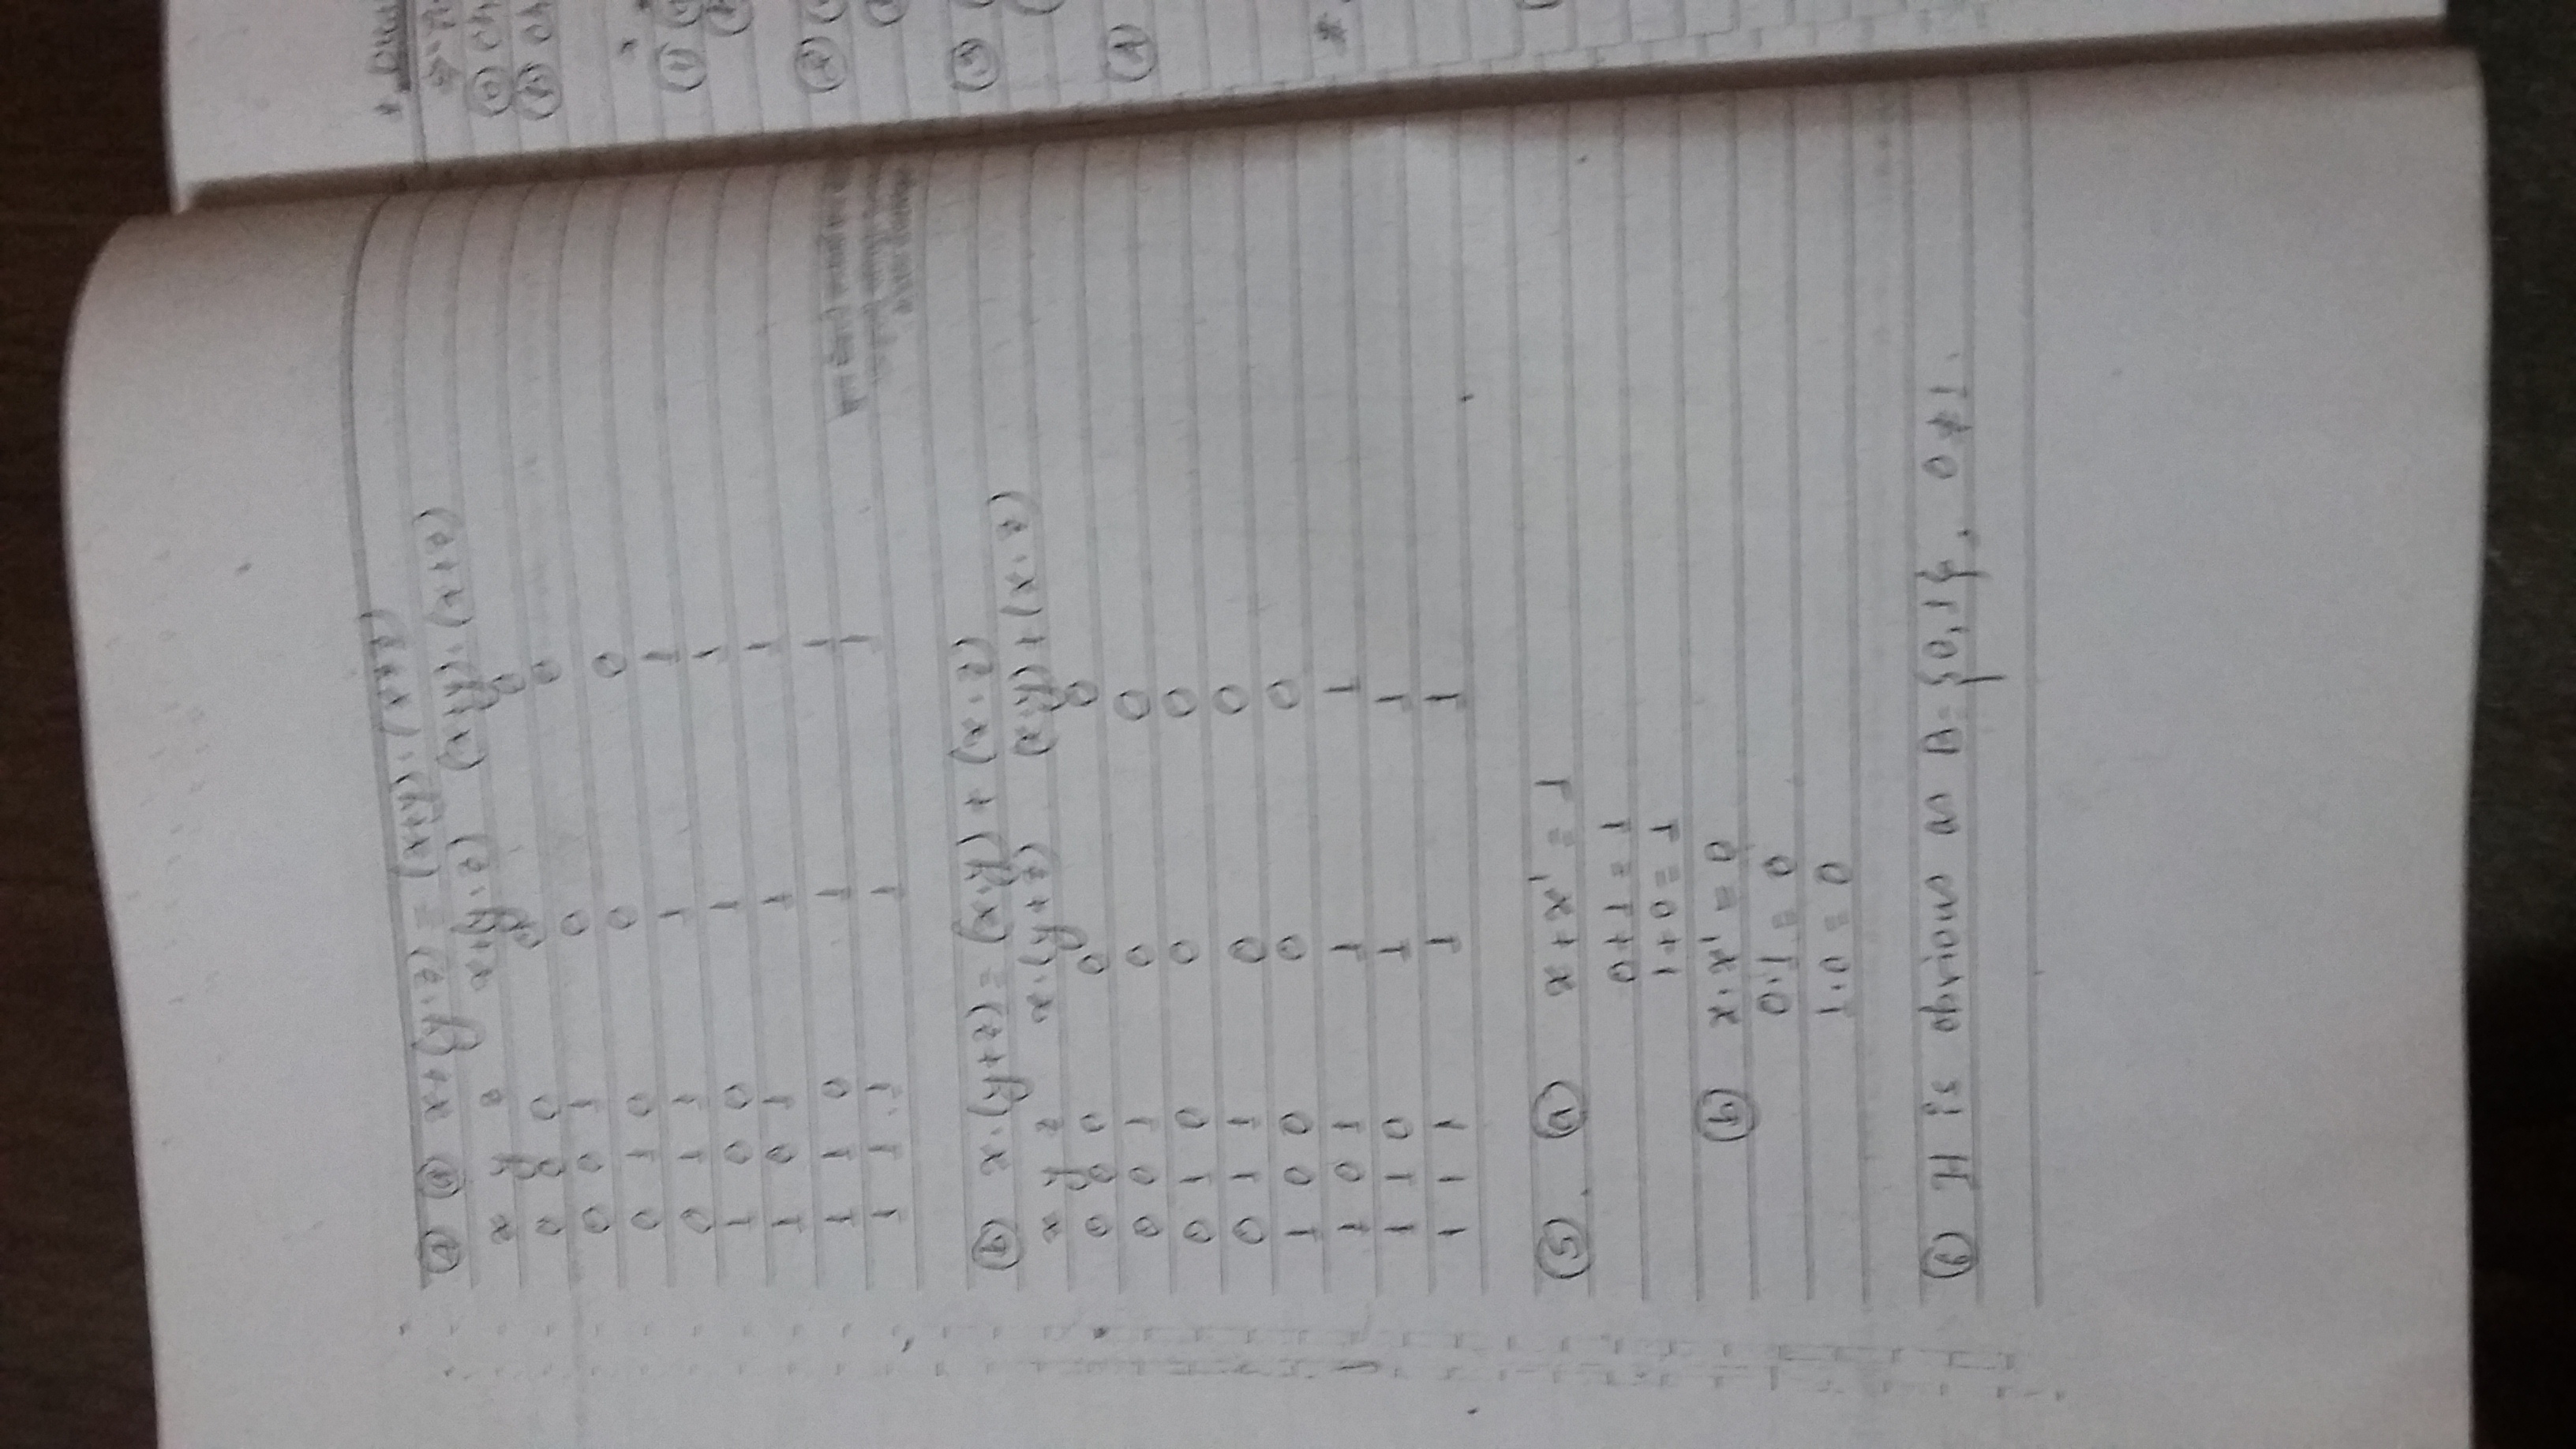 (4) (a) x+(y·z) = (x+y)·(x+z)
x y z x+(y·z) (x+y)·(x+z)
0 0 0 0 0
0 0 1 0 0
0 1 0 0 0
0 1 1 1 1
1 0 0 1 1
1 0 1 1 1
1 1 0 1 1
1 1 1 1 1
(b) x·(y+z) = (x·y) + (x·z)
x y z x·(y+z) (x·y)+(x·z)
0 0 0 0 0
0 0 1 0 0
0 1 0 0 0
0 1 1 0 0
1 0 0 0 0
1 0 1 1 1
1 1 0 1 1
1 1 1 1 1
(5). (a) x+x' = 1
0+1 = 1
1+0 = 1
(b) x·x' = 0
0·1 = 0
1·0 = 0
(6) It is obvious as B={0,1}, 0≠1.
(a)
(b)
(1)
(2)
(3)
(4)